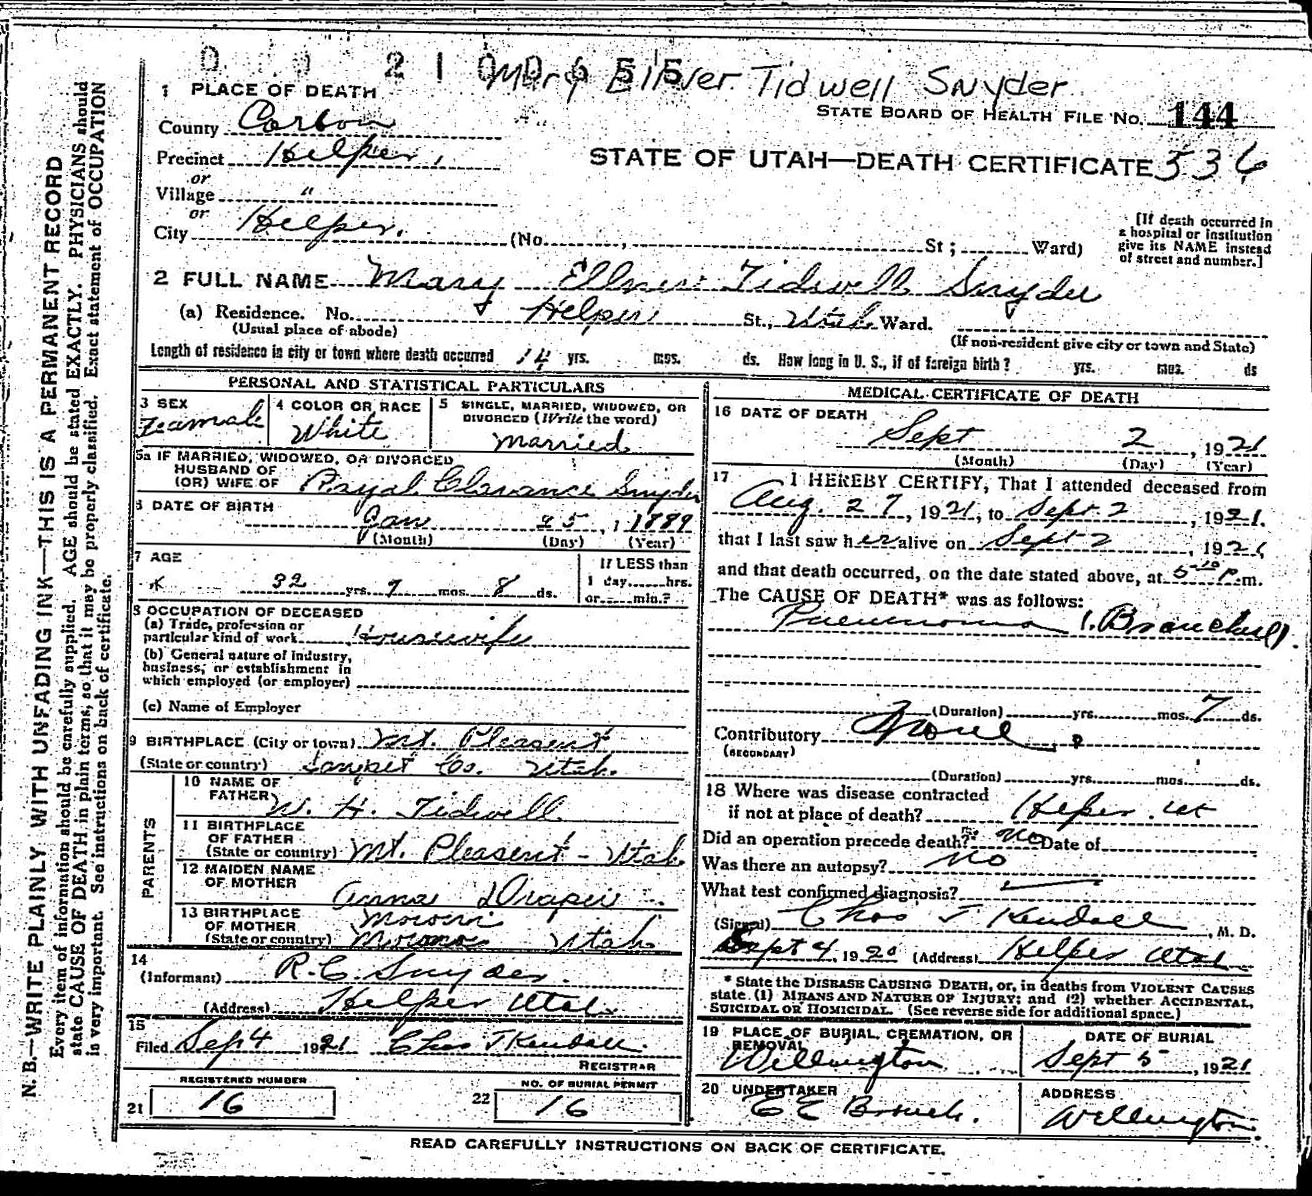 Mary Ellner Tidwell Snyder
1 PLACE OF DEATH
STATE BOARD OF HEALTH FILE NO. 144
County Carbon
Precinct Helper,
STATE OF UTAH—DEATH CERTIFICATE 536
or
Village "
or
City Helper. (No. , St; Ward)
[If death occurred in
a hospital or institution
give its NAME instead
of street and number.]
2 FULL NAME Mary Ellner Tidwell Snyder
(a) Residence. No. Helper St., Utah Ward.
(Usual place of abode)
(If non-resident give city or town and State)
Length of residence in city or town where death occurred 14 yrs. mos. ds. How long in U. S., if of foreign birth? yrs. mos. ds
PERSONAL AND STATISTICAL PARTICULARS
3 SEX
Feamale
4 COLOR OR RACE
White
5 SINGLE, MARRIED, WIDOWED, OR
DIVORCED (Write the word)
Married
5a IF MARRIED, WIDOWED, OR DIVORCED
HUSBAND OF
(OR) WIFE OF Royal Clarance Snyder
6 DATE OF BIRTH
Jan 25, 1889
(Month) (Day) (Year)
7 AGE
32 yrs. 7 mos. 8 ds.
If LESS than
1 day hrs.
or min.?
8 OCCUPATION OF DECEASED
(a) Trade, profession or
particular kind of work Housewife
(b) General nature of industry,
business, or establishment in
which employed (or employer)
(c) Name of Employer
9 BIRTHPLACE (City or town) Mt. Pleasent
(State or country) Sanpet Co. Utah.
PARENTS
10 NAME OF
FATHER W. H. Tidwell
11 BIRTHPLACE
OF FATHER
(State or country) Mt. Pleasent - Utah
12 MAIDEN NAME
OF MOTHER Anna Draper
13 BIRTHPLACE
OF MOTHER Moroni
(State or country) Utah
14
(Informant) R. C. Snyder
(Address) Helper Utah
15
Filed Sep 4 1921 Chas T Kendall.
REGISTRAR
REGISTERED NUMBER
21 16
NO. OF BURIAL PERMIT
22 16
MEDICAL CERTIFICATE OF DEATH
16 DATE OF DEATH
Sept 2, 1921
(Month) (Day) (Year)
17 I HEREBY CERTIFY, That I attended deceased from
Aug. 27, 1921, to Sept. 2, 1921.
that I last saw her alive on Sept 2, 1921
and that death occurred, on the date stated above, at 5 10 P.m.
The CAUSE OF DEATH* was as follows:
Pneumonia, Bronchial.
(Duration) yrs. mos. 7 ds.
Contributory None
(SECONDARY)
(Duration) yrs. mos. ds.
18 Where was disease contracted
if not at place of death? Helper. Ut
Did an operation precede death? No Date of
Was there an autopsy? No
What test confirmed diagnosis?
(Signed) Chas T Kendall, M. D.
Sept 4, 1920 (Address) Helper Utah
* State the DISEASE CAUSING DEATH, or, in deaths from VIOLENT CAUSES
state (1) MEANS AND NATURE OF INJURY; and (2) whether ACCIDENTAL,
SUICIDAL OR HOMICIDAL. (See reverse side for additional space.)
19 PLACE OF BURIAL, CREMATION, OR
REMOVAL
Wellington
DATE OF BURIAL
Sept 5, 1921
20 UNDERTAKER
ADDRESS
Wellington.
READ CAREFULLY INSTRUCTIONS ON BACK OF CERTIFICATE.
N. B.—WRITE PLAINLY WITH UNFADING INK—THIS IS A PERMANENT RECORD
Every item of information should be carefully supplied. AGE should be stated EXACTLY. PHYSICIANS should
state CAUSE OF DEATH in plain terms, so that it may be properly classified. Exact statement of OCCUPATION
is very important. See instructions on back of certificate.